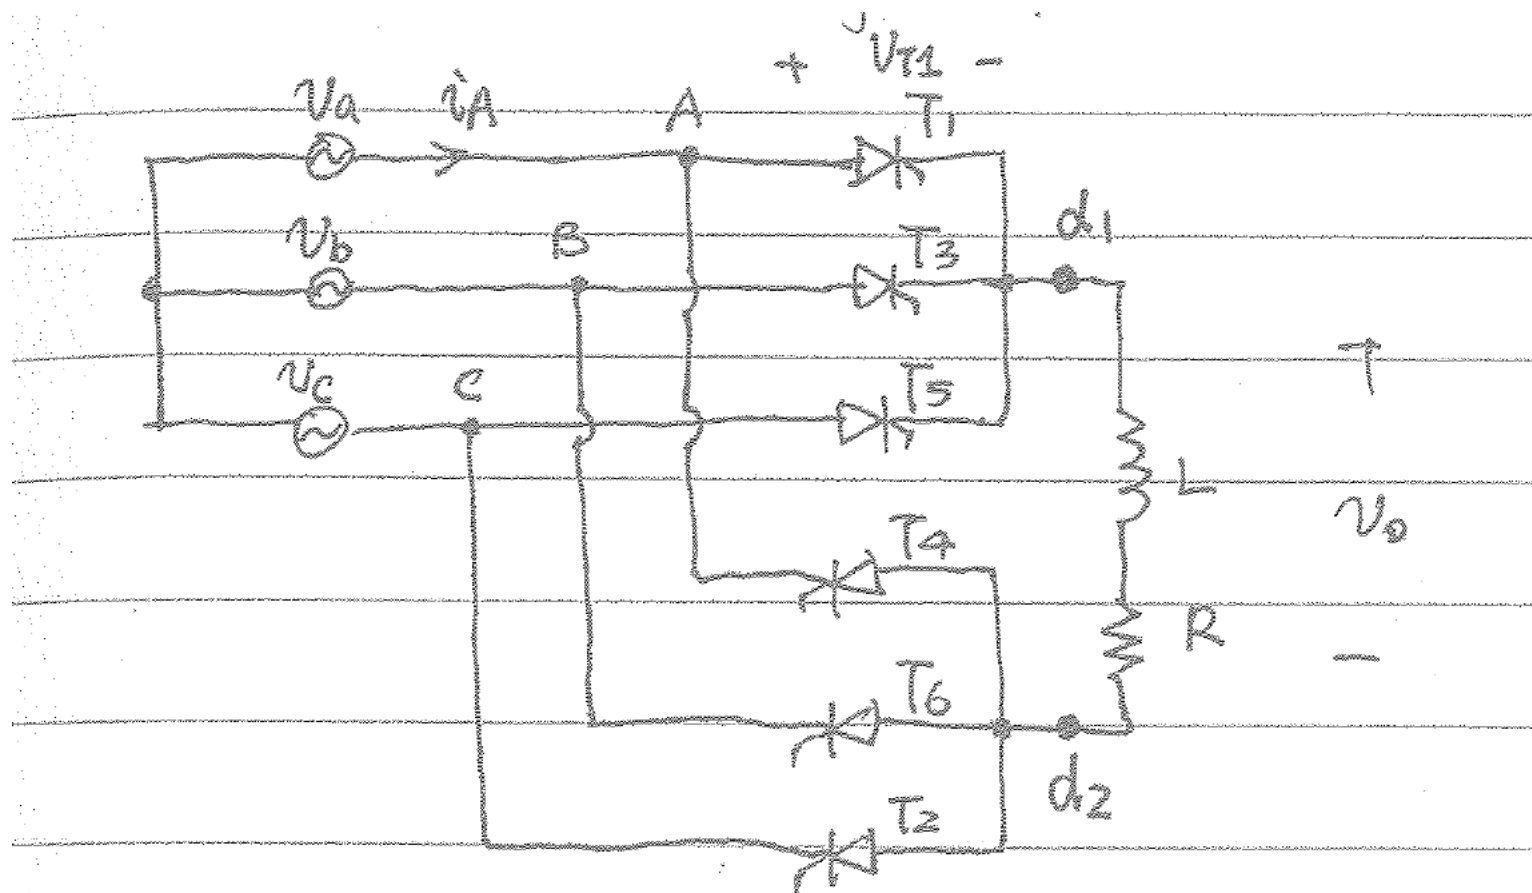 + VT1 -
va iA A T1
vb B T3 d1
vc C T5
L
vo
T4
R
-
T6
d2
T2